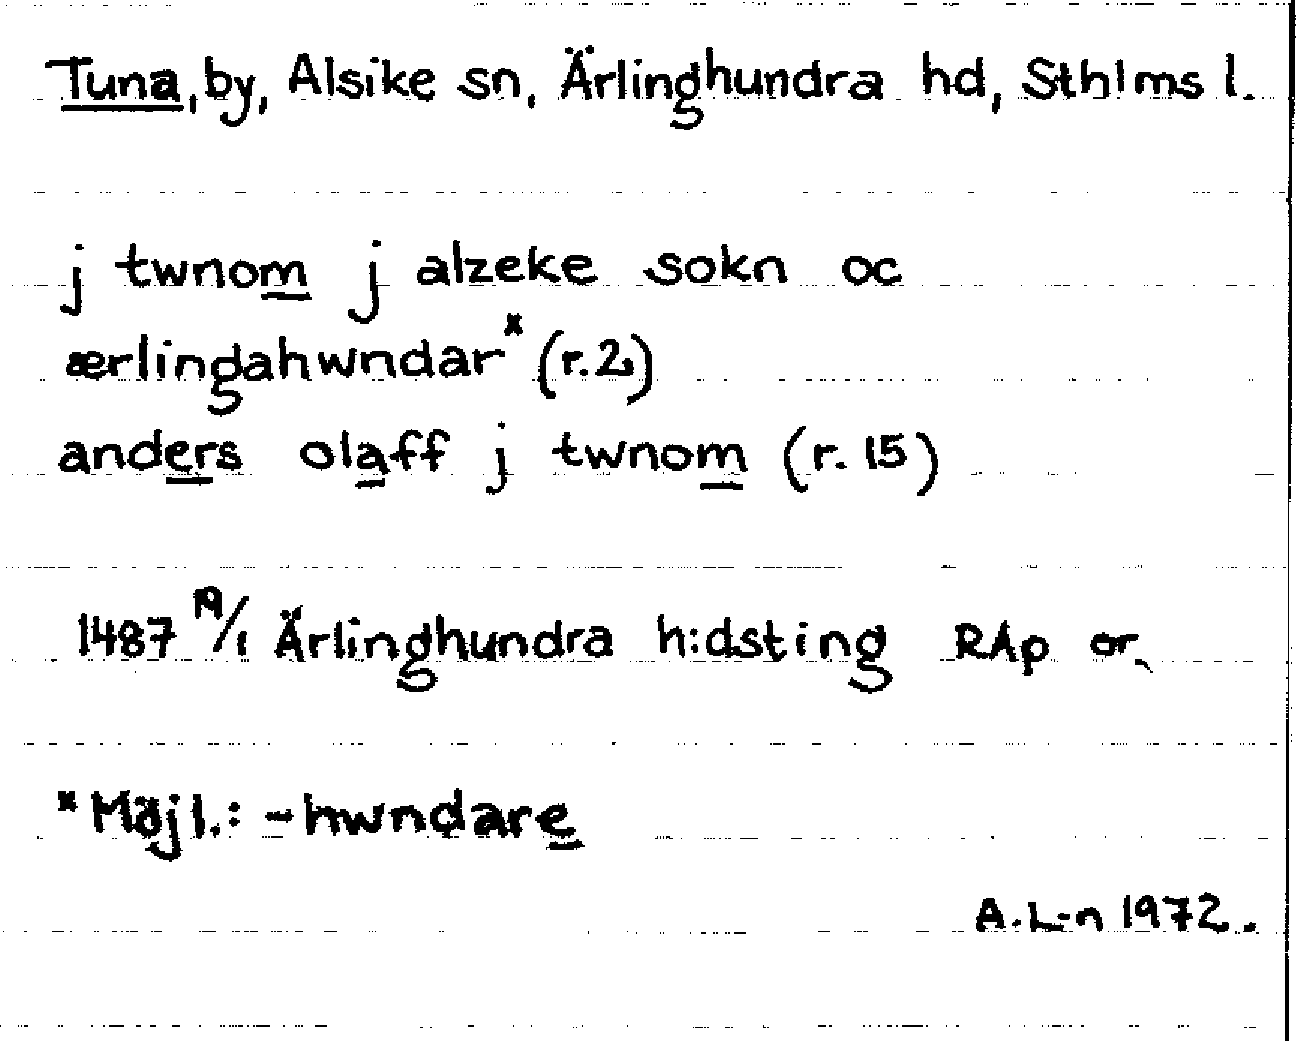 Tuna, by, Alsike sn, Ärlinghundra hd, Sthlms l.
j twnom j alzeke sokn oc
ærlingahwndar* (r.2)
anders olaff j twnom (r. 15)
1487 19/1 Ärlinghundra h:dsting RAp or.
*Möjl.: -hwndare
A.L-n 1972.